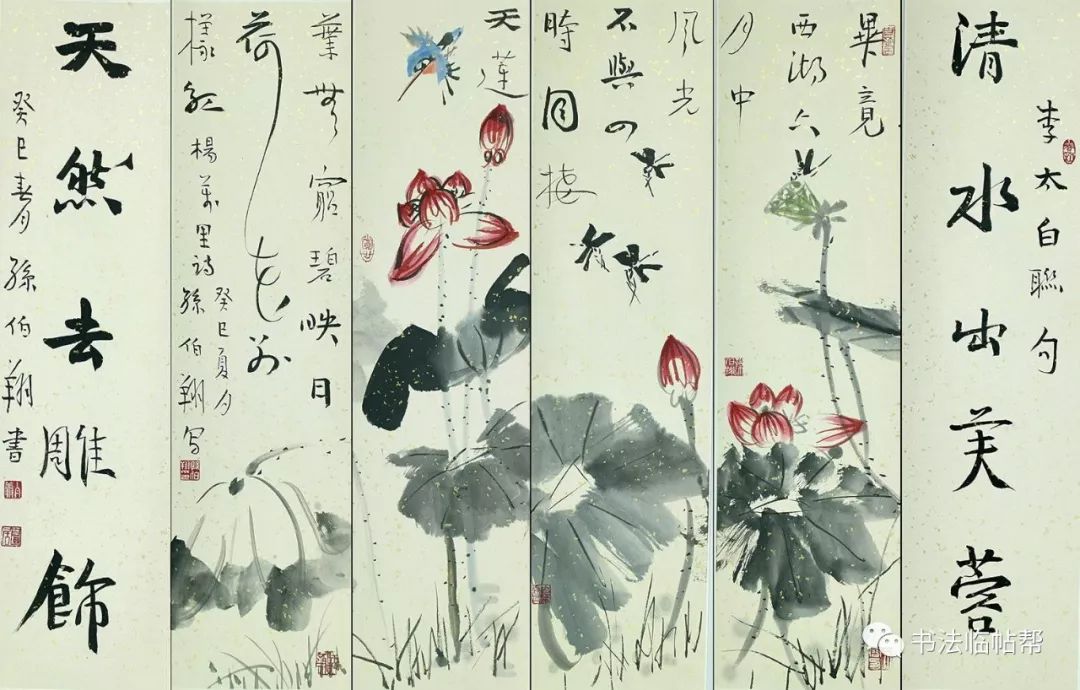 李太白聯句
清水出芙蓉
畢竟
西湖六
月中
風光
不與四
時同接
天蓮
葉無窮碧映日
荷花別
樣紅 楊萬里詩 孫伯翔寫
癸巳夏月
天然去雕飾
癸巳春月 孫伯翔書
书法临帖帮